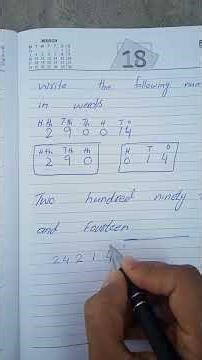 MARCH
18
Write the following num
in words
H.th T.th Th H T O
2 9 0 0 14
H.th T.th th H T O
2 9 0 0 1 4
Two hundred ninety
and fourteen
2 4 2 1 4